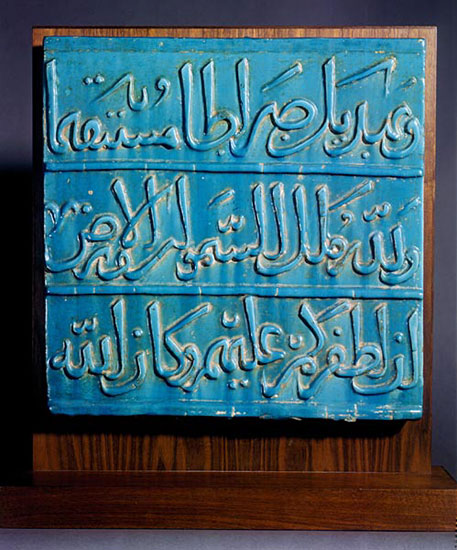 ويهديك صراطا مستقيما وي
ولله ملك السموات والارض
ان اظفركم عليهم وكان الله